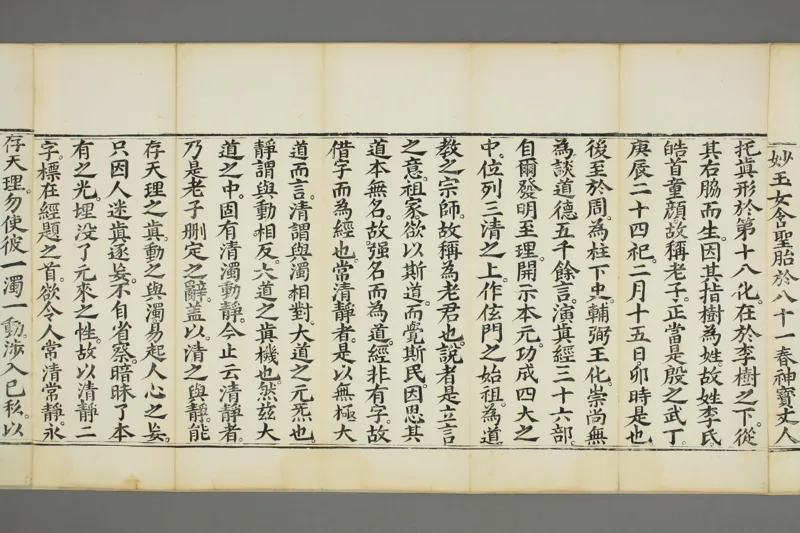 妙玉女含聖胎於八十一春神寶丈人
托眞形於第十八化在於李樹之下從
其右脇而生因其指樹為姓故姓李氏
皓首童顔故稱老子正當是殷之武丁
庚辰二十四祀二月十五日卯時是也
後至於周為柱下史輔弼王化崇尚無
為談道德五千餘言演眞經三十六部
自爾發明至理開示本元功成四大之
中位列三清之上作位門之始祖為道
教之宗師故稱為老君也說者是立言
之意祖家欲以斯道而覺斯民因思其
道本無名故强名而為道經非有字故
借字而為經也常清靜者是以無極大
道而言清謂與濁相對大道之元炁也
靜謂與動相反六道之眞機也然茲大
道之中固有清濁動靜今止云清靜者
乃是老子刪定之辭蓋以清之與靜能
存天理之眞動之與濁易起人心之妄
只因人迷眞逐妄不自省察暗昧了本
有之光埋没了元來之性故以清靜二
字標在經題之首欲令人常清常靜永
存天理勿使彼一濁一動涉入己私以